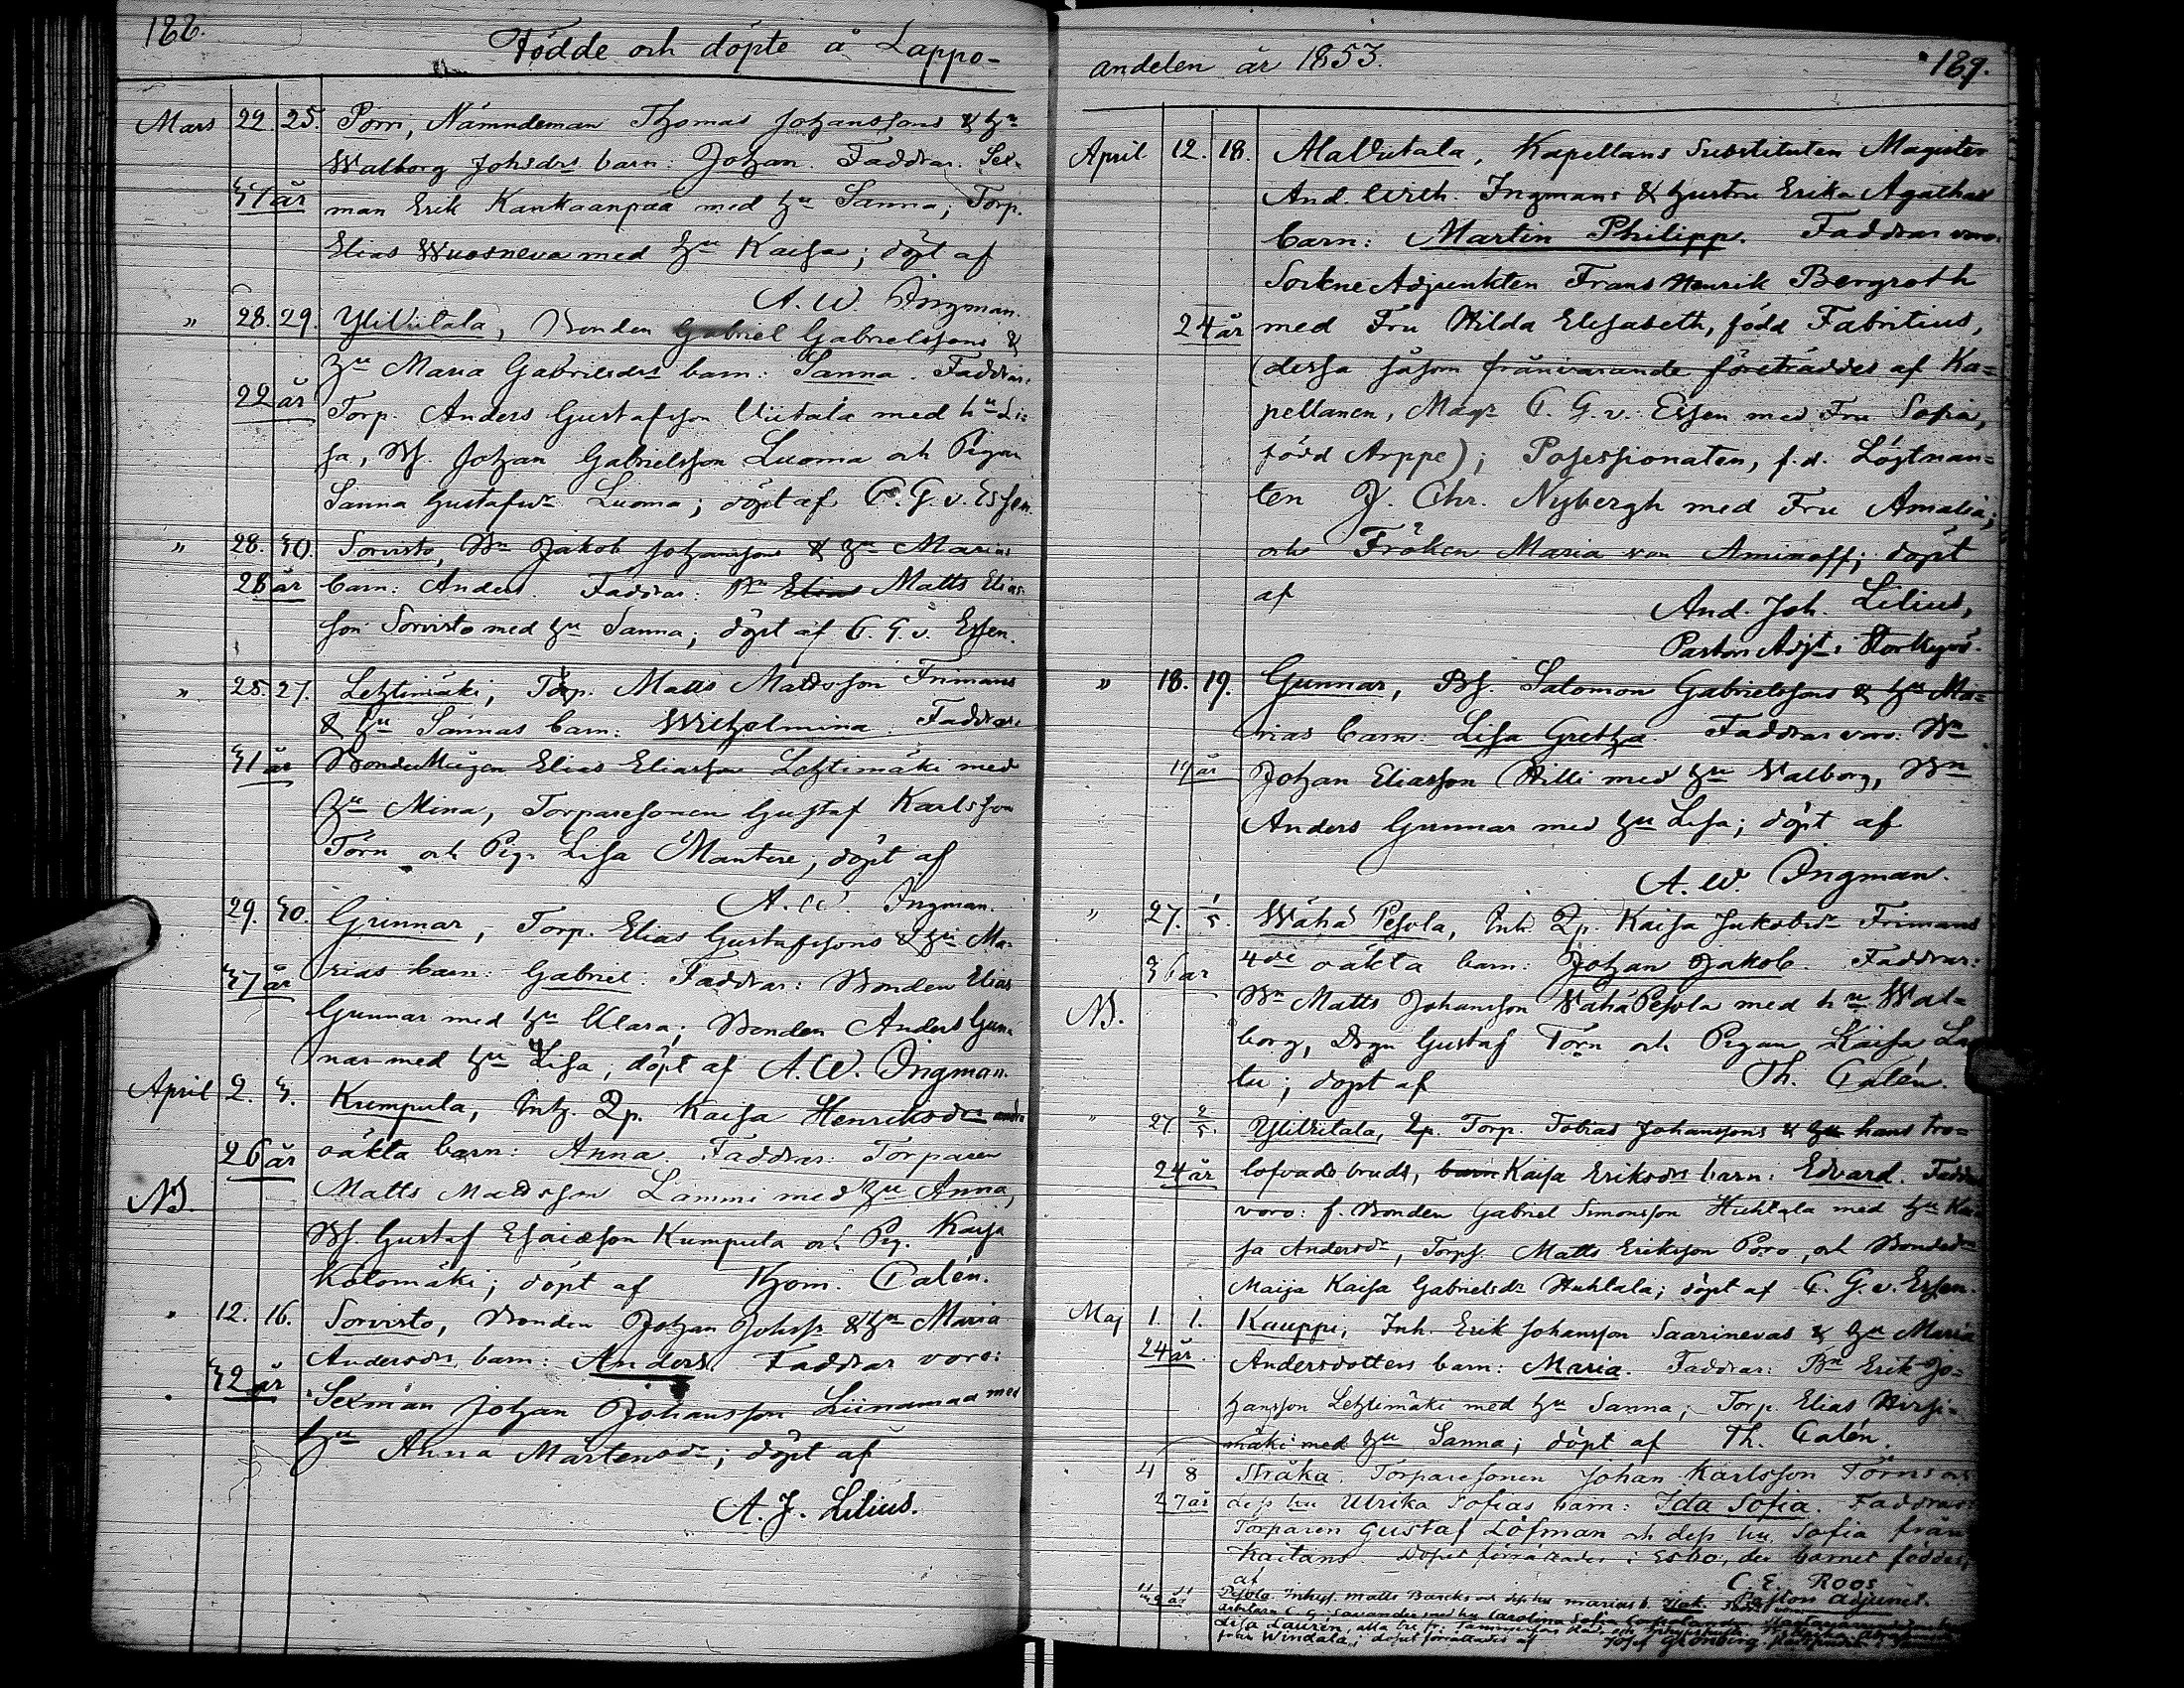 188.
Födde och döpte å Lappo-
Mars 22. 25. Porri, Nämndeman Thomas Johanssons & hu
Walborg Johsdrs barn: Johan. Faddrar. Sex-
37 år man Erik Kankaanpää med hu Sanna; Torp.
Elias Wuosneva med hu Kaisa; döpt af
A. W. Ingman.
" 28. 29. YliViitala, Bonden Gabriel Gabrielssons &
hu Maria Gabrielsdrs barn: Sanna. Faddrar:
22 år Torp. Anders Gustafsson Viitala med hu Li-
sa, Bs. Johan Gabrielsson Luoma och Pigan
Sanna Gustafsdr Luoma; döpt af C. G. v. Essen.
" 28. 30. Sorvisto, Bn Jakob Johanssons & hu Marias
28 år barn: Anders. Faddrar: Bn Elias Matts Elias-
son Sorvisto med hu Sanna; döpt af C. G. v. Essen.
" 25. 27. Lehtimäki, Torp. Matts Mattsson Frimans
& hu Sannas barn: Wilhelmina. Faddrar:
31 år BondeMågen Elias Eliasson Lehtimäki med
hu Mina, Torparesonen Gustaf Karlsson
Törn och Pig. Lisa Mantere; döpt af
A. W. Ingman.
29. 30. Gunnar, Torp. Elias Gustafssons & hu Ma-
37 år rias barn: Gabriel. Faddrar: Bonden Elias
Gunnar med hu Clara; Bonden Anders Gun-
nar med hu Lisa, döpt af A. W. Ingman.
April 2. 3. Kumpula, Inh. Qp. Kaisa Henriksdrs andra
26 år oäkta barn: Anna. Faddrar: Torparen
NB. Matts Mattsson Lammi med hu Anna,
Bs. Gustaf Esaiæson Kumpula och Pig. Kaisa
Katomäki; döpt af Thom. Calén.
" 12. 16. Sorvisto, Bonden Johan Johss. & hu Maria
Andersdrs barn: Anders. Faddrar voro:
32 år Sexman Johan Johansson Liinamaa med
hu Anna Mårtensdr; döpt af
A. J. Lilius.
andelen år 1853.
189.
April 12. 18. AlaViitala, Kapellans Substituten Magister
And. Wilh. Ingmans & hustru Erika Agathas
barn: Martin Philipp. Faddrar voro:
SockneAdjunkten Frans Henrik Bergroth
24 år med Fru Hilda Elisabeth, född Fabritius,
(dessa såsom frånvarande företräddes af Ka-
pellanen, Magr C. G. v. Essen med Fru Sofia,
född Arppe); Posessionaten, f.d. Löjtnan-
ten J. Chr. Nybergh med Fru Amalia;
och Fröken Maria von Aminoff; döpt
af And. Joh. Lilius,
Pastors Adjt i Storkyrö.
" 18. 19. Gunnar, Bs. Salomon Gabrielssons & hu Ma-
rias barn: Lisa Gretha. Faddrar voro: Bn
19 år Johan Eliasson Hilli med hu Walborg, Bn
Anders Gunnar med hu Lisa; döpt af
A. W. Ingman.
" 27. 1/5. Wähä Pesola, Inh. Qp. Kaisa Jakobsdr Frimans
36 år 4de oäkta barn: Johan Jakob. Faddrar:
NB. Bn Matts Johansson WähäPesola med hu Wal-
borg, Drgn Gustaf Törn och Pigan Kaisa La
tu; döpt af Th. Calén.
" 27 2/5. YliViitala, Qp. Torp. Tobias Johanssons & hu hans tro-
24 år lofvade brud, barn Kaisa Eriksdrs barn: Edvard. Faddrar
voro: f. Bonden Gabriel Simonsson Huhtala med hu Kai
sa Andersdr, Torps. Matts Eriksson Poro, och Bondedr
Maija Kaisa Gabrielsdr Huhtala; döpt af C. G. v. Essen.
Maj 1. 1. Kauppi, Inh. Erik Johansson Saarinevas & hu Maria
24 år. Andersdotters barn: Maria. Faddrar: Bn Erik Jo-
hansson Lehtimäki med hu Sanna; Torp. Elias Hirsi-
mäki med hu Sanna; döpt af Th. Calén.
4 8 Stråka. Torparesonen Johan Karlsson Törns och
27 år dess hu Ulrika Sofias barn: Ida Sofia. Faddrar:
Torparen Gustaf Löfman och dess hu Sofia från
Kaitans. Dopet förrättades i Esbo, der barnet föddes,
af C. E. Roos
Pastors adjunct.
Pesola. Inhys. Matts Backs och dess hu Marias b.
Carolina Sofia
Lisa Lauren, alla
från Windala; dopet förrättades af Josef Grönberg,